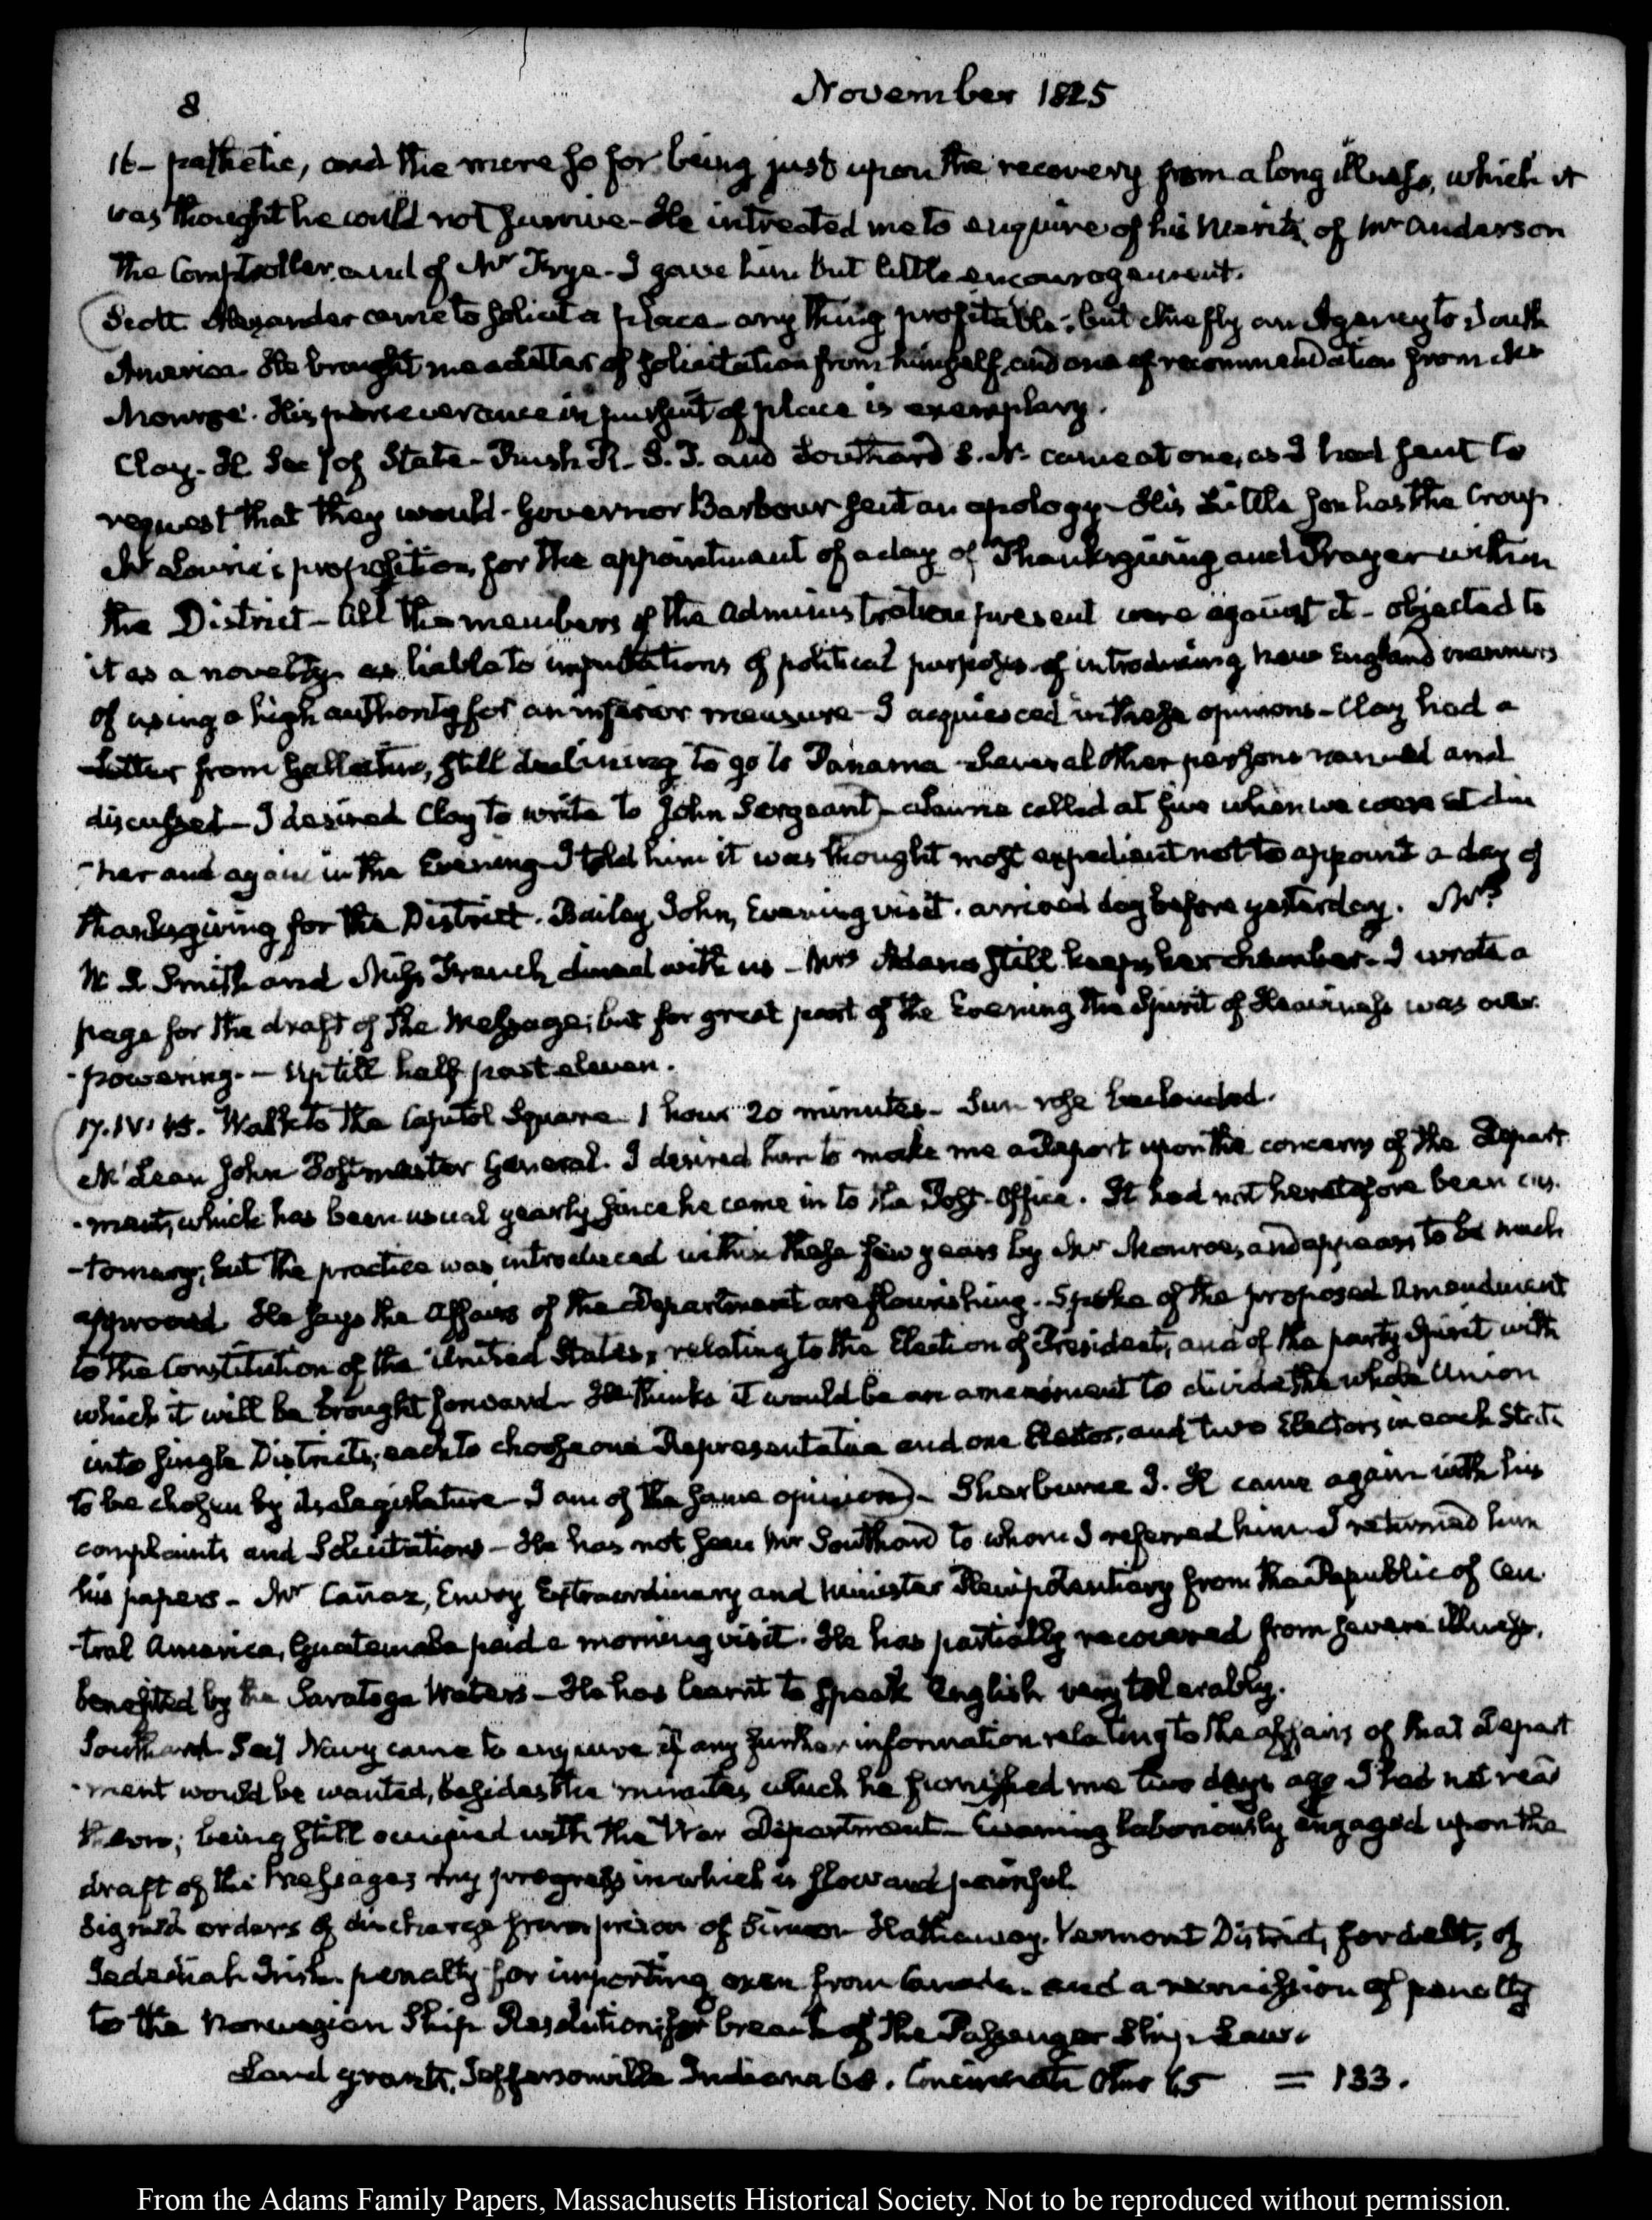 8
November 1825
16- pathetic, and the more so for being just upon the recovery from a long illness, which it
was thought he could not survive- He intreated me to enquire of his merits, of Mr Anderson
the Comptroller, and of Mr Frye- I gave him but little encouragement.
Scott Alexander came to solicit a place- any thing profitable; but chiefly an Agency to South
America- He brought me a Letter of solicitation from himself, and one of recommendation from Mr
Monroe. His perseverance in pursuit of place is exemplary.
Clay- H Secy of State- Rush R. S. T. and Southard S. N- came at one, as I had sent to
request that they would- Governor Barbour sent an apology- His Little Son has the Croup.
Mr Laurie's proposition, for the appointment of a day of Thanksgiving and Prayer within
the District- All the members of the Administration present were against it- objected to
it as a novelty- as liable to imputations of political purposes- of introducing New England manners
of using a high authority for an inferior measure- I acquiesced in these opinions- Clay had a
Letter from Gallatin, still declining to go to Panama- Several other persons named and
discussed- I desired Clay to write to John Sergeant)- Laurie called at five when we were at din
-ner and again in the Evening- I told him it was thought most expedient not to appoint a day of
thanksgiving for the District. Bailey John, Evening visit. arrived day before yesterday. Mrs
W. S. Smith and Miss French dined with us- Mrs Adams still keeps her chamber- I wrote a
page for the draft of the Message; but for great part of the Evening the Spirit of Heaviness was over
-powering.- Up till half past eleven.
17. IV: 45. Walk to the Capitol Square- 1 hour 20 minutes- Sun rose beclouded.
McLean John Postmaster General. I desired him to make me a Report upon the concerns of the Depart
-ment, which has been usual yearly since he came in to the Post-Office. It had not heretofore been cus-
-tomary; but the practice was introduced within these few years by Mr Monroe, and appears to be much
approved. He says the affairs of the Department are flourishing. Spoke of the proposed Amendment
to the Constitution of the United States, relating to the Election of President, and of the party Spirit with
which it will be brought forward- He thinks it would be an amendment to divide the whole Union
into single Districts; each to choose one Representative and one Elector, and two Electors in each State
to be chosen by its Legislature- I am of the same opinion)- Sherburne J. H came again with his
complaints and Solicitations- He has not seen Mr Southard to whom I referred him- I returned him
his papers- Mr Cañaz, Envoy Extraordinary and Minister Plenipotentiary from the Republic of Cen
-tral America, Guatemala paid a morning visit. He has partially recovered from severe illness,
benefited by the Saratoga Waters- He has learnt to speak English very tolerably.
Southard Secy Navy came to enquire if any further information relating to the affairs of that Depart
-ment would be wanted, besides the minutes which he furnished me two days ago I had not read
them; being still occupied with the War Department- Evening laboriously engaged upon the
draft of the Message; my progress in which is slow and painful.
Signed orders of discharge from prison of Simeon Hathaway, Vermont District, for debt; of
Jedediah penalty for importing oxen from Canada. and a remission of penalty
to the Norwegian Ship Restoration; for breach of the Passenger Ship Law.
Land grants, Jeffersonville Indiana 68. Cincinnati Ohio 65 = 133.
From the Adams Family Papers, Massachusetts Historical Society. Not to be reproduced without permission.